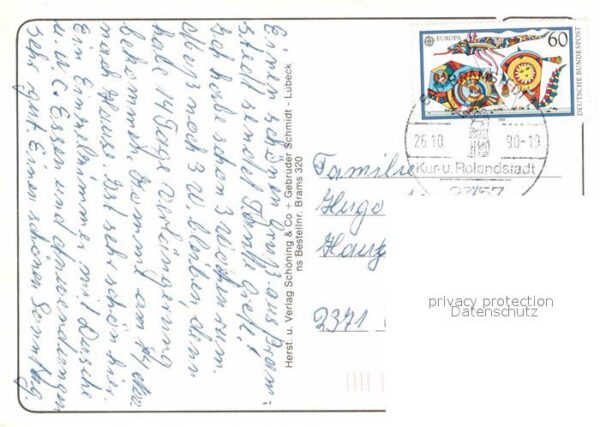 Einen schönen Gruß aus Bram-
stedt sendet Tante Grete!
Ich habe schon 3 Wochen rum.
Muß noch 3 W. bleiben, denn
habe 14 Tage Verlängerung
bekommen. Komme am
nach Haus. Ist sehr schön hier.
Ein Einzelzimmer mit Dusche
u. W.C. Essen und Anwendungen
sehr gut. Einen schönen Sonntag.
Herst. u. Verlag Schöning & Co + Gebrüder Schmidt - Lübeck
ns Bestellnr. Brams 320
EUROPA 60
DEUTSCHE BUNDESPOST
26.10. 90-19
Kur-u. Rolandstadt
2357
Familie
Hugo
2371
privacy protection
Datenschutz